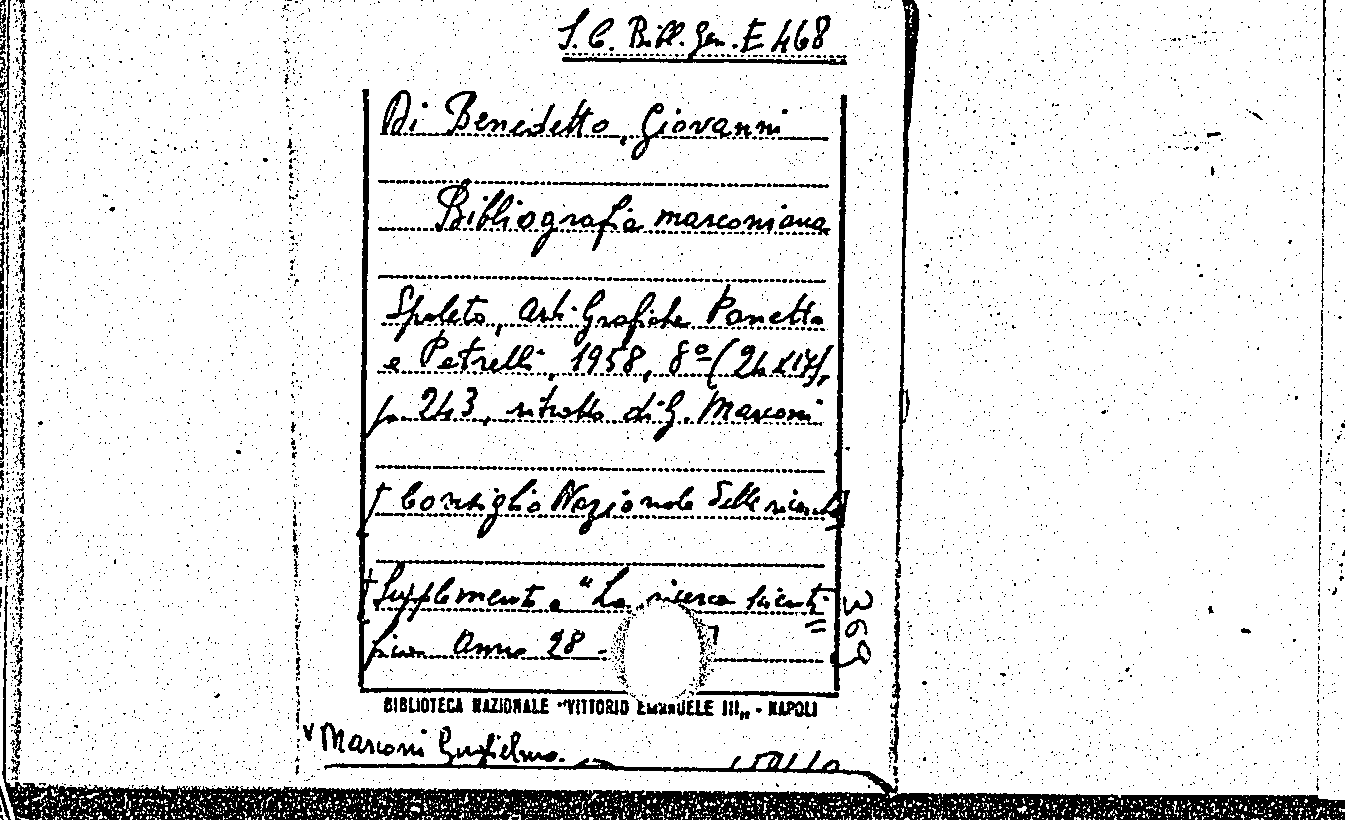 S. C. Bibl. Gen. E 468
Di Benedetto, Giovanni
Bibliografia marconiana
Spoleto, Arti Grafiche Panetto
e Petrelli, 1958, 8º (24x17),
p. 243, ritratto di G. Marconi
[Consiglio Nazionale delle ricerche]
[Supplemento a "La ricerca scienti=
fica Anno 28 -
369
BIBLIOTECA NAZIONALE "VITTORIO EMANUELE III„ - NAPOLI
v Marconi Guglielmo.